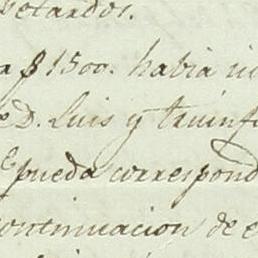 petardos.
$ 1500. habia
D. Luis y triunf
pueda correspond
continuacion de e